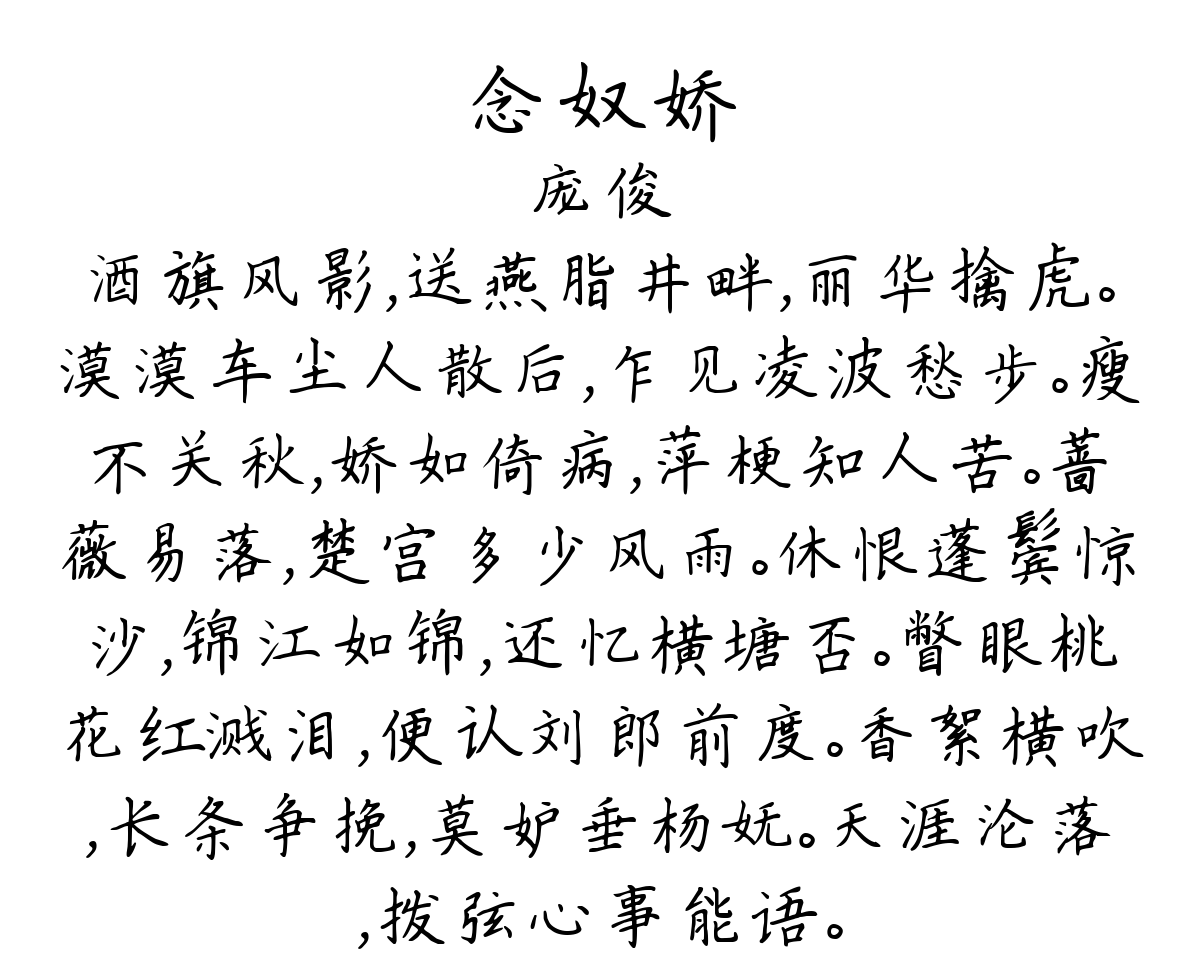 念奴娇
庞俊
酒旗风影,送燕脂井畔,丽华擒虎。
漠漠车尘人散后,乍见凌波愁步。瘦
不关秋,娇如倚病,萍梗知人苦。蔷
薇易落,楚宫多少风雨。休恨蓬鬓惊
沙,锦江如锦,还忆横塘否。瞥眼桃
花红溅泪,便认刘郎前度。香絮横吹
,长条争挽,莫妒垂杨妩。天涯沦落
,拨弦心事能语。